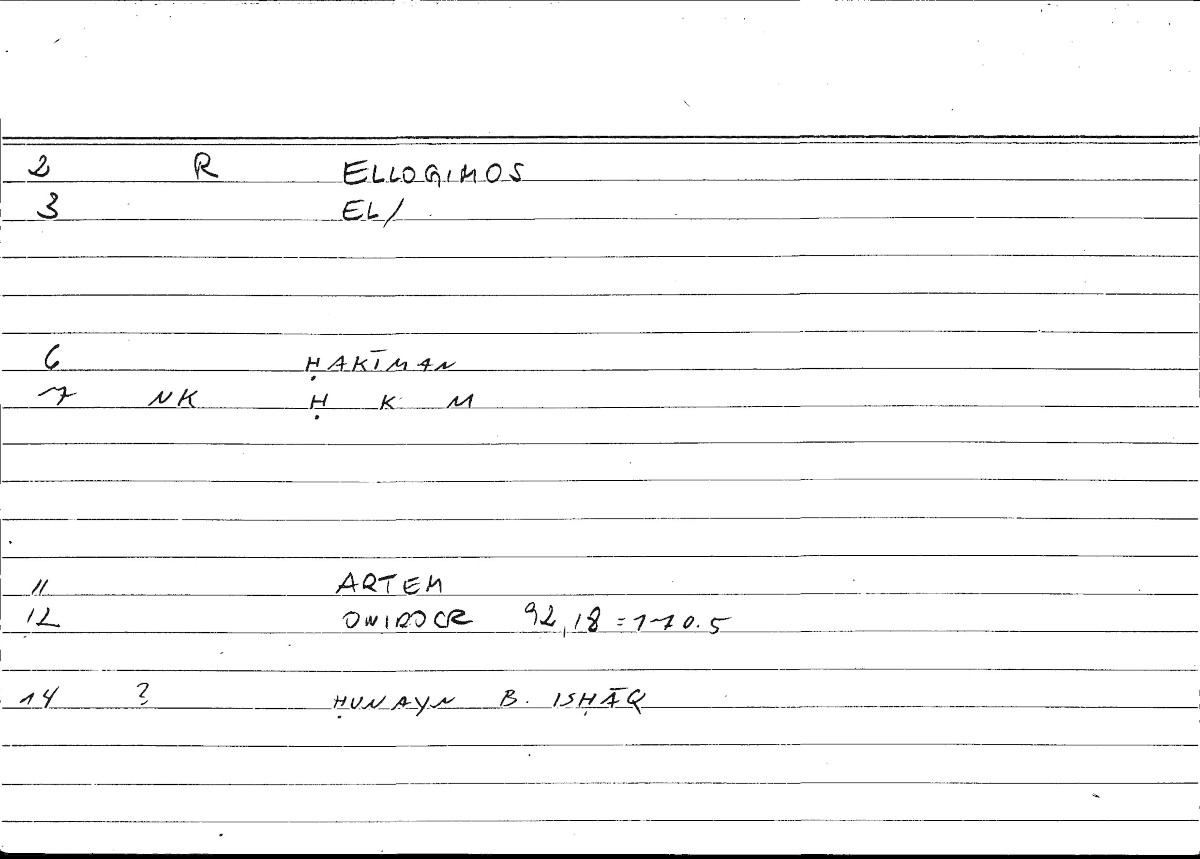 2 R ELLOGIMOS
3 EL/
6 ḤAKĪMAN
7 NK Ḥ K M
11 ARTEM
12 ONIROCR 92,18 = 170.5
14 ? ḤUNAYN B. ISḤĀQ